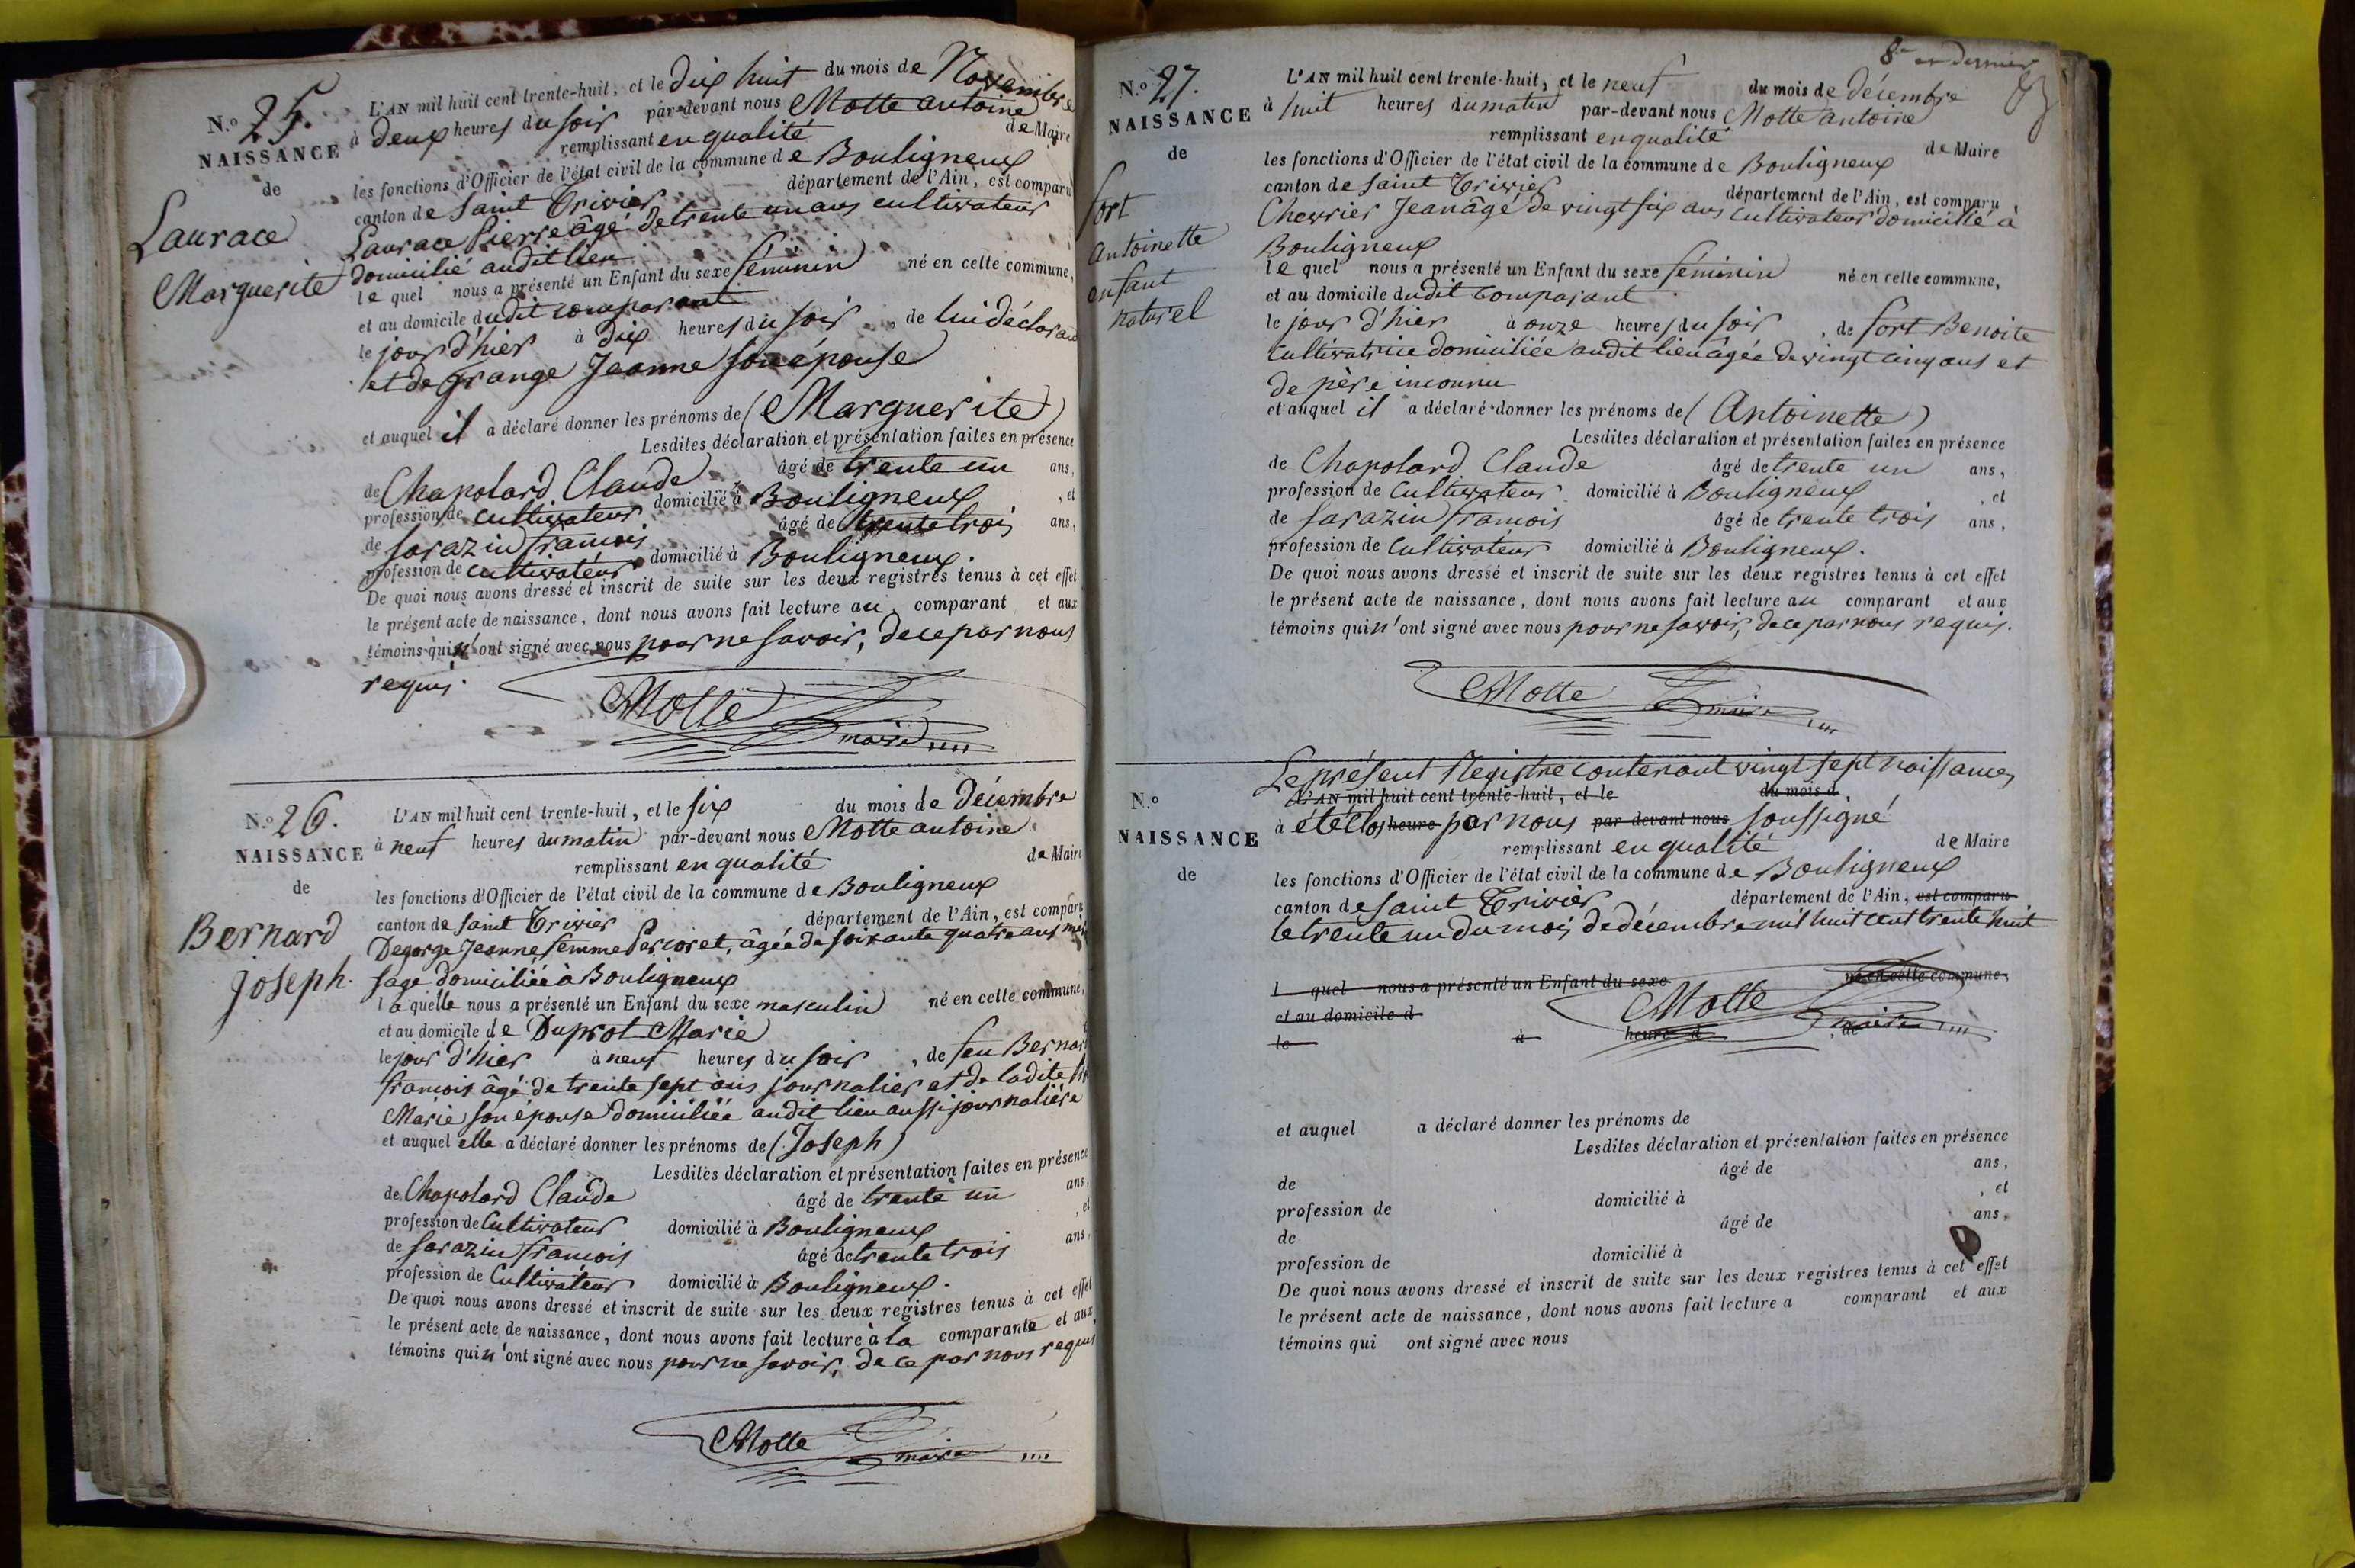 N.o 25.
NAISSANCE
de
Laurace
Marguerite
L'AN mil huit cent trente-huit, et le dix huit du mois de Novembre
à deux heures du soir par-devant nous Motte antoine
remplissant en qualité de Maire
les fonctions d'Officier de l'état civil de la commune de Bouligneux
canton de saint Trivier département de l'Ain, est comparu
Laurace Pierre âgé de trente un ans cultivateur
domicilié audit lieu
le quel nous a présenté un Enfant du sexe féminin né en cette commune,
et au domicile dudit comparant
le jour d'hier à dix heures du soir, de lui déclarant
et de Grange Jeanne son épouse
et auquel il a déclaré donner les prénoms de (Marguerite)
Lesdites déclaration et présentation faites en présence
de Chapolard Claude âgé de trente un ans,
profession de cultivateur domicilié à Bouligneux, et
de sarazin francois âgé de trente trois ans,
profession de cultivateur domicilié à Bouligneux.
De quoi nous avons dressé et inscrit de suite sur les deux registres tenus à cet effet
le présent acte de naissance, dont nous avons fait lecture au comparant et aux
témoins qui n'ont signé avec nous pour ne savoir, de ce par nous
requis.
Motte
maire
N.o 26.
NAISSANCE
de
Bernard
joseph.
L'AN mil huit cent trente-huit, et le six du mois de décembre
à neuf heures du matin par-devant nous Motte antoine
remplissant en qualité de Maire
les fonctions d'Officier de l'état civil de la commune de Bouligneux
canton de saint Trivier département de l'Ain, est comparu
Degorge Jeanne femme âgée de soixante quatre ans
sage domiciliée à Bouligneux
laquelle nous a présenté un Enfant du sexe masculin né en cette commune,
et au domicile de Duprot Marie
le jour d'hier à neuf heures du soir, de feu Bernar
francois âgé de trente sept ans journalier et de ladite
Marie son épouse domiciliée audit lieu aussi journalière
et auquel elle a déclaré donner les prénoms de (Joseph)
Lesdites déclaration et présentation faites en présence
de Chapolard Claude âgé de trente un ans,
profession de Cultivateur domicilié à Bouligneux, et
de sarazin francois âgé de trente trois ans,
profession de Cultivateur domicilié à Bouligneux.
De quoi nous avons dressé et inscrit de suite sur les deux registres tenus à cet effet
le présent acte de naissance, dont nous avons fait lecture à la comparante et aux
témoins qui n'ont signé avec nous pour ne savoir, de ce par nous requis
Motte
maire
8e et dernier
N.o 27.
NAISSANCE
de
fort
Antoinette
enfant
naturel
L'AN mil huit cent trente-huit, et le neuf du mois de décembre
à huit heures du matin par-devant nous Motte antoine
remplissant en qualité de Maire
les fonctions d'Officier de l'état civil de la commune de Bouligneux
canton de saint Trivier département de l'Ain, est comparu
Chevrier Jean âgé de vingt six ans cultivateur domicilié à
Bouligneux
le quel nous a présenté un Enfant du sexe féminin né en cette commune,
et au domicile dudit comparant
le jour d'hier à onze heures du soir, de fort Benoite
cultivatrice domiciliée audit lieu âgée de vingt cinq ans et
de père inconnu
et auquel il a déclaré donner les prénoms de (Antoinette)
Lesdites déclaration et présentation faites en présence
de Chapolard Claude âgé de trente un ans,
profession de Cultivateur domicilié à Bouligneux, et
de sarazin francois âgé de trente trois ans,
profession de Cultivateur domicilié à Bouligneux.
De quoi nous avons dressé et inscrit de suite sur les deux registres tenus à cet effet
le présent acte de naissance, dont nous avons fait lecture au comparant et aux
témoins qui n'ont signé avec nous pour ne savoir, de ce par nous requis.
Motte
maire
N.o
NAISSANCE
de
Le présent Registre contenant vingt sept naissances
L'AN mil huit cent trente-huit, et le du mois d
à été clos heure par nous par-devant nous soussigné
remplissant en qualité de Maire
les fonctions d'Officier de l'état civil de la commune de Bouligneux
canton de saint Trivier département de l'Ain, est comparu
le trente un du mois de décembre mil huit cent trente huit
l quel nous a présenté un Enfant du sexe né en cette commune,
et au domicile d
le à heure d , de
Motte
maire
et auquel a déclaré donner les prénoms de
Lesdites déclaration et présentation faites en présence
de âgé de ans,
profession de domicilié à , et
de âgé de ans,
profession de domicilié à
De quoi nous avons dressé et inscrit de suite sur les deux registres tenus à cet effet
le présent acte de naissance, dont nous avons fait lecture a comparant et aux
témoins qui ont signé avec nous